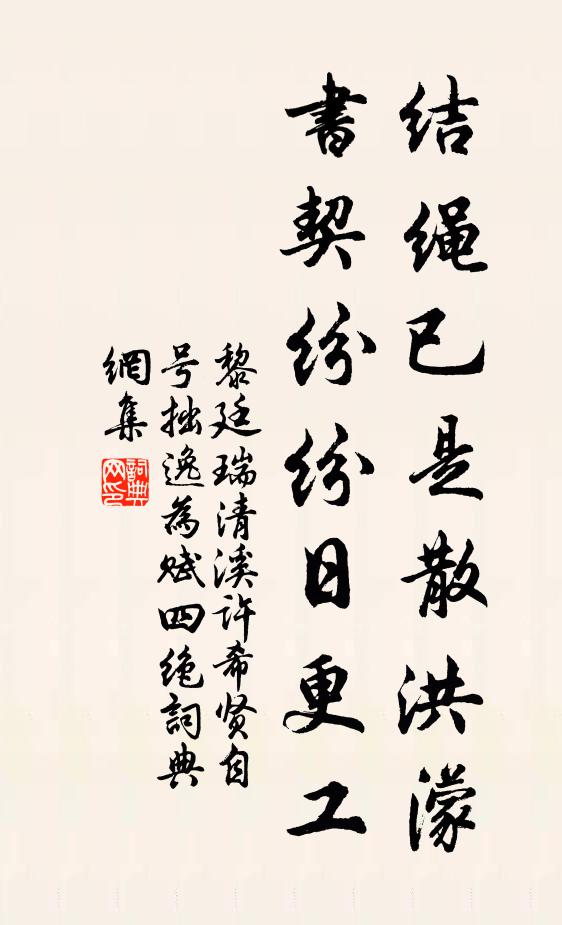 结绳已是散洪濛
書契纷纷日更工
黎廷瑞清溪许希贤自
号拙逸為赋四绝詞典
網集
詞典網印